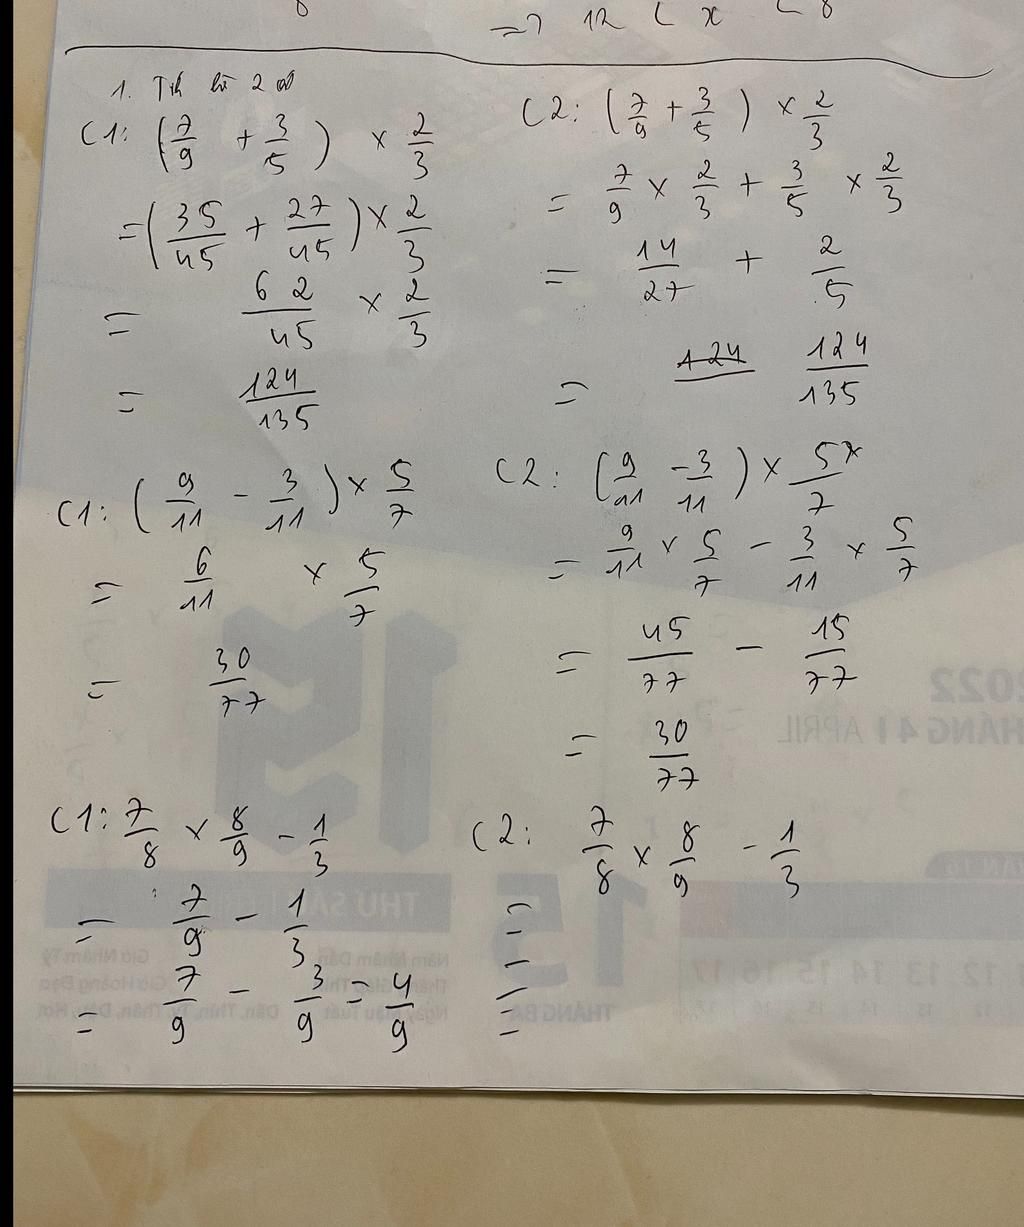 => 12 < x < 8
1. Tính bằng 2 cách
C1: (7/9 + 3/5) × 2/3
= (35/45 + 27/45) × 2/3
= 62/45 × 2/3
= 124/135
C2: (7/9 + 3/5) × 2/3
= 7/9 × 2/3 + 3/5 × 2/3
= 14/27 + 2/5
= 124/135
C1: (9/11 - 3/11) × 5/7
= 6/11 × 5/7
= 30/77
C2: (9/11 - 3/11) × 5/7
= 9/11 × 5/7 - 3/11 × 5/7
= 45/77 - 15/77
= 30/77
C1: 7/8 × 8/9 - 1/3
= 7/9 - 1/3
= 7/9 - 3/9 = 4/9
C2: 7/8 × 8/9 - 1/3
=
=
=
2022
THÁNG 4 | APRIL
15
THÁNG BA
12 13 14 15 16 17